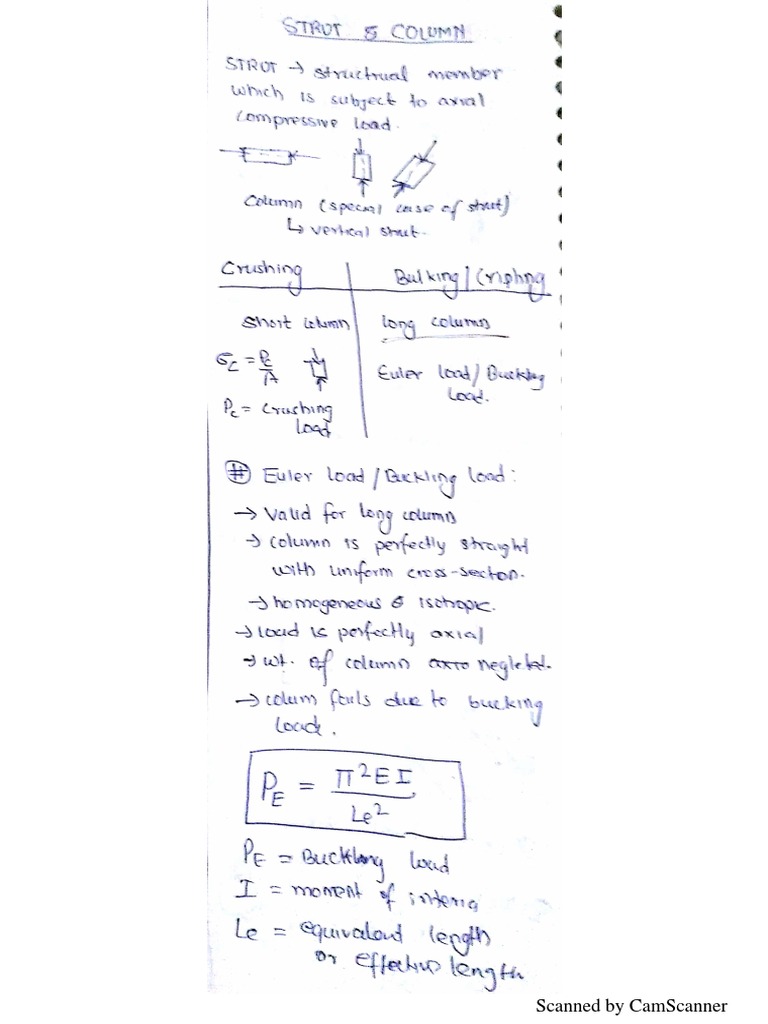 STRUT & COLUMN
STRUT → structrual member
which is subject to axial
compressive load.
Column (special case of strut)
↳ vertical strut.
Crushing
Bulking/Cripling
Short column
long columns
σc = Pc/A
Euler load/Buckling
Load.
Pc = Crushing
load
# Euler load/Buckling load:
→ Valid for long column
→ column is perfectly straight
with uniform cross-secton.
→ homogeneous & isotropic.
→ load is perfectly axial
→ wt. of column neglected.
→ colum fails due to bucking
load.
PE = π²EI/Le²
PE = Buckling load
I = moment of interia
Le = equivalent length
or effective length
Scanned by CamScanner